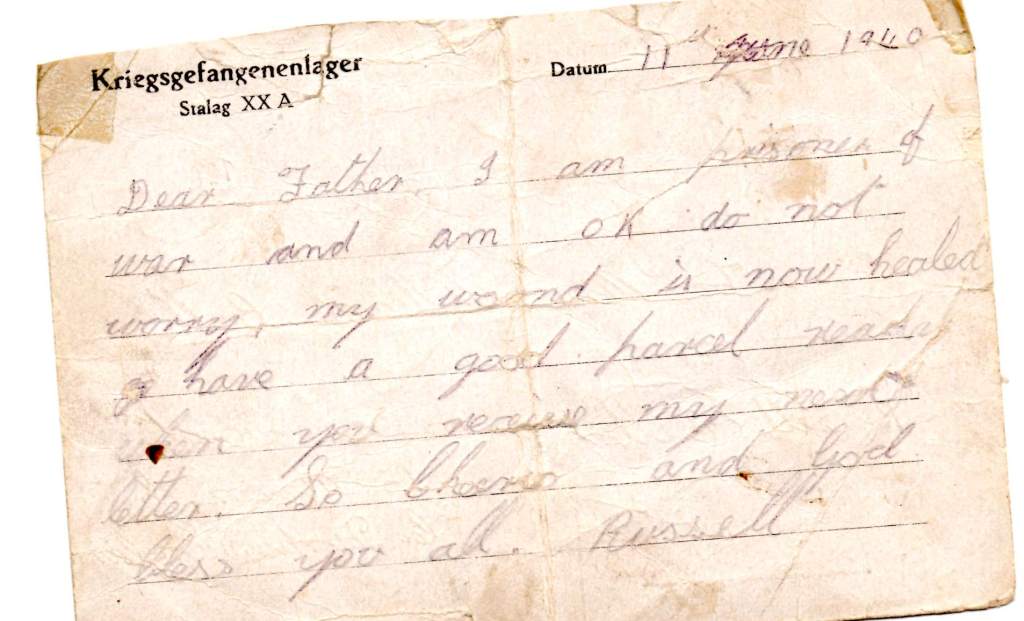 Kriegsgefangenenlager
Stalag XX A
Datum 11 June 1940
Dear Father, I am prisoner of
war and am OK do not
worry, my wound is now healed
have a good parcel ready
when you receive my next
letter. So Cheerio and God
bless you all. Russell